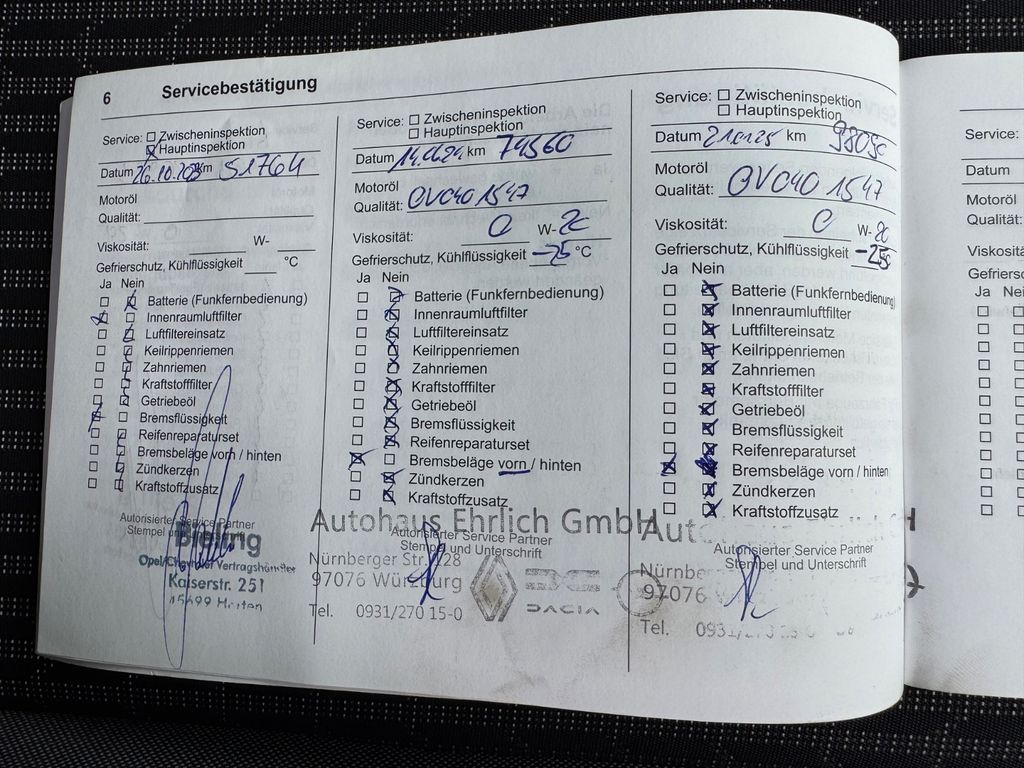 6 Servicebestätigung
Service: Zwischeninspektion
Hauptinspektion
Datum 26.10. km 51764
Motoröl
Qualität:
Viskosität: W-
Gefrierschutz, Kühlflüssigkeit °C
Ja Nein
Batterie (Funkfernbedienung)
Innenraumluftfilter
Luftfiltereinsatz
Keilrippenriemen
Zahnriemen
Kraftstofffilter
Getriebeöl
Bremsflüssigkeit
Reifenreparaturset
Bremsbeläge vorn / hinten
Zündkerzen
Kraftstoffzusatz
Autorisierter Service Partner
Stempel
Breiting
Opel/Chevrolet Vertragshändler
Kaiserstr. 251
Service: Zwischeninspektion
Hauptinspektion
Datum km 74560
Motoröl
Qualität: OVO40 1547
Viskosität: 0 W-
Gefrierschutz, Kühlflüssigkeit -25 °C
Ja Nein
Batterie (Funkfernbedienung)
Innenraumluftfilter
Luftfiltereinsatz
Keilrippenriemen
Zahnriemen
Kraftstofffilter
Getriebeöl
Bremsflüssigkeit
Reifenreparaturset
Bremsbeläge vorn / hinten
Zündkerzen
Kraftstoffzusatz
Autohaus Ehrlich GmbH
Autorisierter Service Partner
Stempel und Unterschrift
Nürnberger Str. 128
97076 Würzburg
DACIA
Tel. 0931/270 15-0
Service: Zwischeninspektion
Hauptinspektion
Datum km
Motoröl
Qualität: OVO40 1547
Viskosität: 0 W-
Gefrierschutz, Kühlflüssigkeit -25
Ja Nein
Batterie (Funkfernbedienung)
Innenraumluftfilter
Luftfiltereinsatz
Keilrippenriemen
Zahnriemen
Kraftstofffilter
Getriebeöl
Bremsflüssigkeit
Reifenreparaturset
Bremsbeläge vorn / hinten
Zündkerzen
Kraftstoffzusatz
Autorisierter Service Partner
Stempel und Unterschrift
97076
Tel.
Service:
Datum
Motoröl
Qualität:
Ja